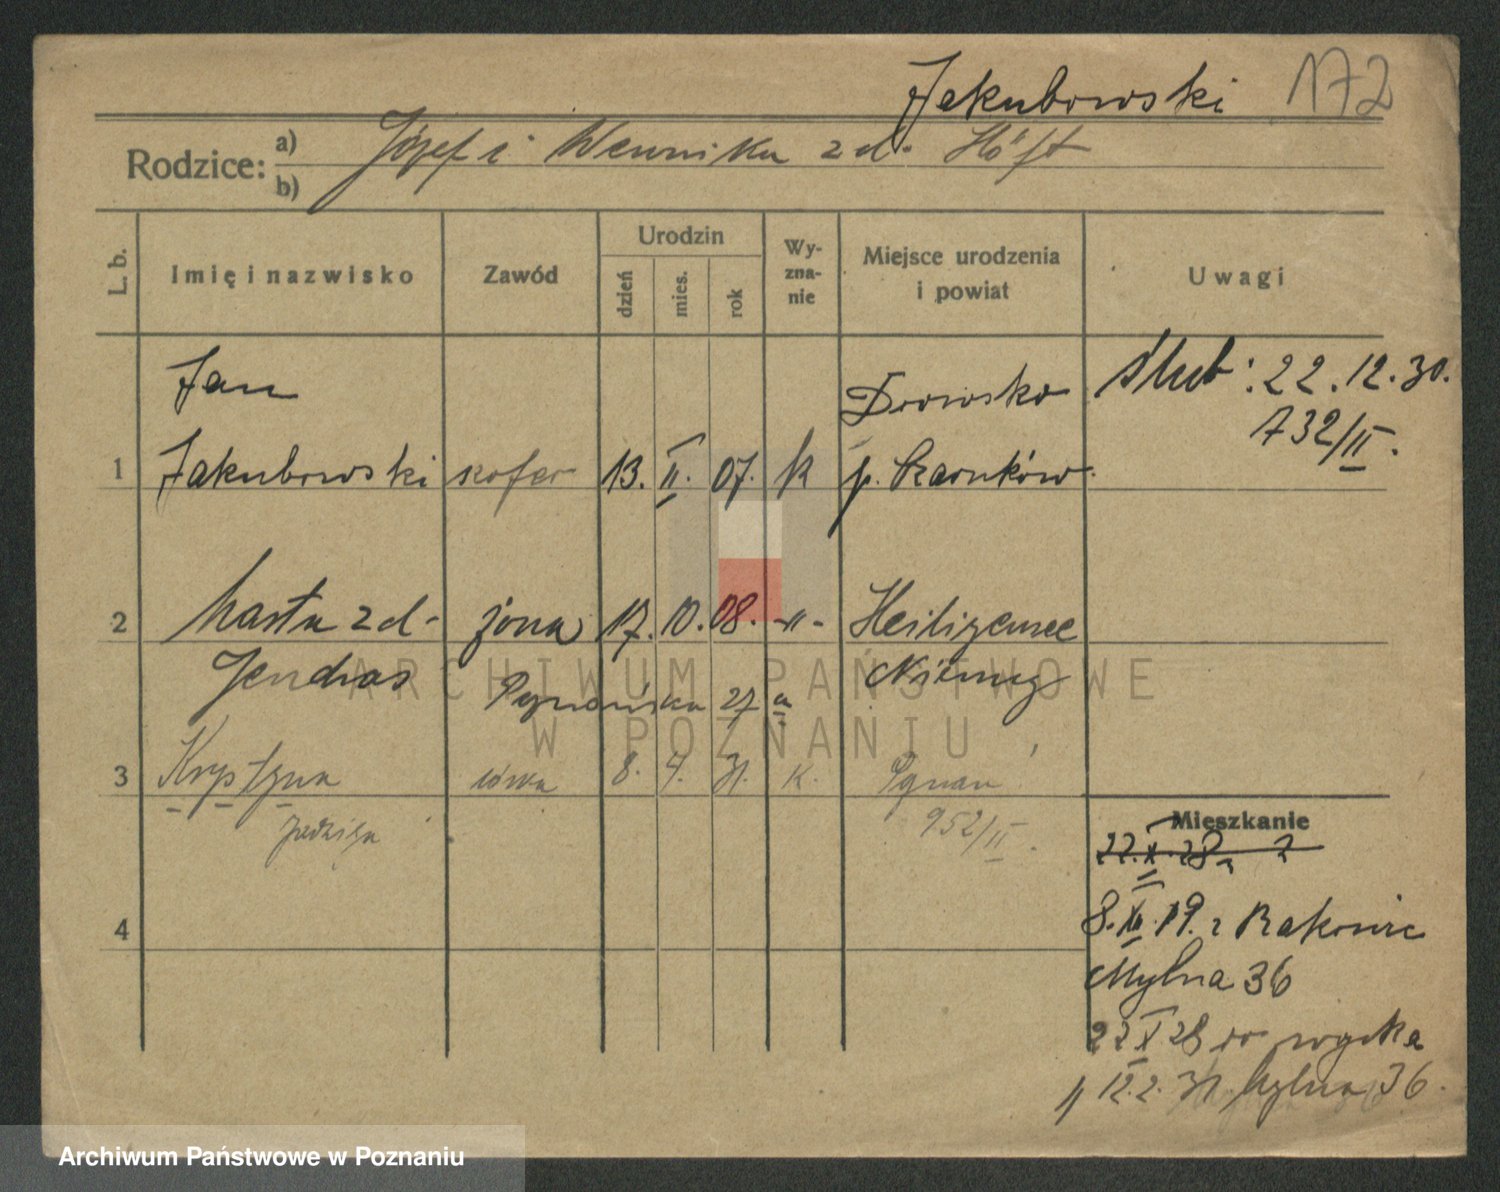 Jakubowski 172
Rodzice: a) Józef i Weronika zd. Höft
b)
L. b. Imię i nazwisko Zawód Urodzin dzień mies. rok Wy-zna-nie Miejsce urodzenia i powiat Uwagi
Jan Drawsko ślub: 22.12.30.
732/II.
1 Jakubowski szofer 13. II. 07. k p. Czarnków
2 Marta zd- żona 17. 10. 08. -"- Heiligensee
Jendras Niemcy
Poznańska 27
3 Krystyna córka 8. 4. 31. k. Poznań
Jadwiga 952/II.
Mieszkanie
22.X.28
4 8. 19. z Rakoniewic
Mylna 36
22 X 28
12.2.31 Mylna 36.
ARCHIWUM PAŃSTWOWE
W POZNANIU
Archiwum Państwowe w Poznaniu